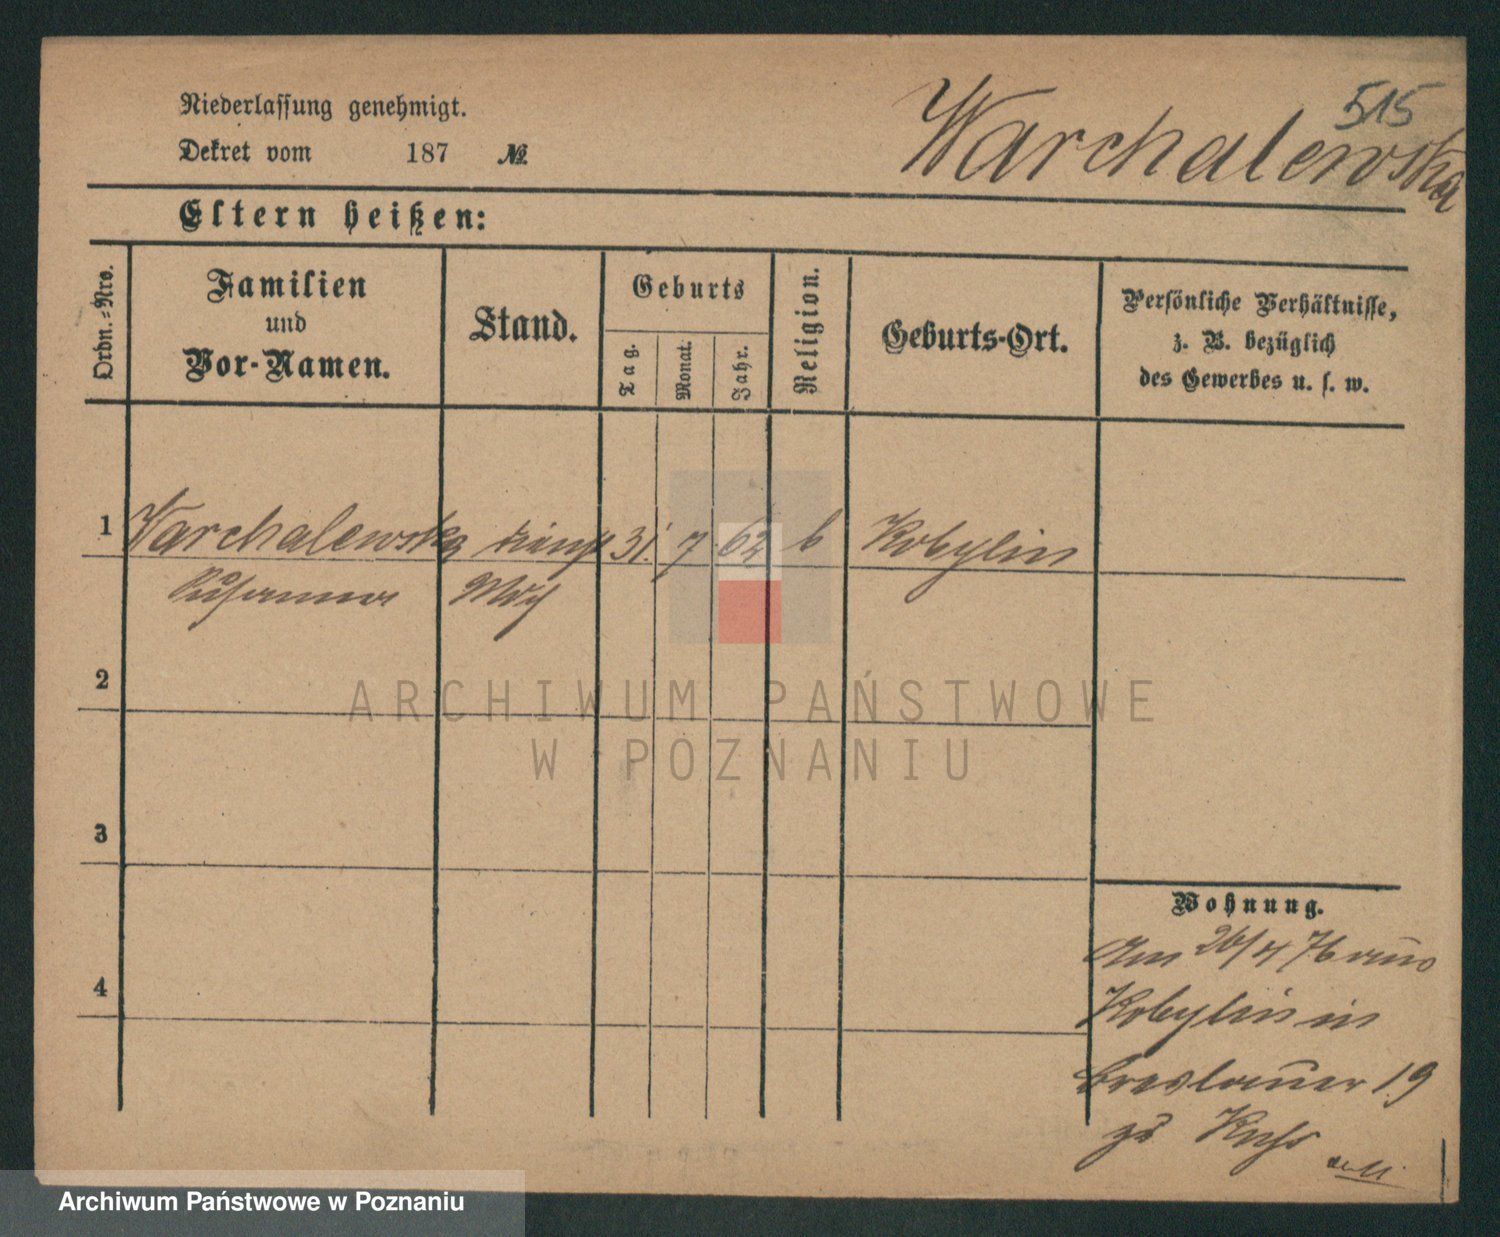 515
Niederlassung genehmigt.
Warchalewska
Dekret vom 187 №
Eltern heißen:
Ordn.-Nro.
Familien
und
Vor-Namen.
Stand.
Geburts
Tag.
Monat.
Jahr.
Religion.
Geburts-Ort.
Persönliche Verhältnisse,
z. B. bezüglich
des Gewerbes u. s. w.
1 Warchalewska 31. 7 62 k Kobylin
2
3
4
ARCHIWUM PAŃSTWOWE
W POZNANIU
Wohnung.
Am 26/4 76 aus
Kobylin in
Breslauer 19
zu
Archiwum Państwowe w Poznaniu